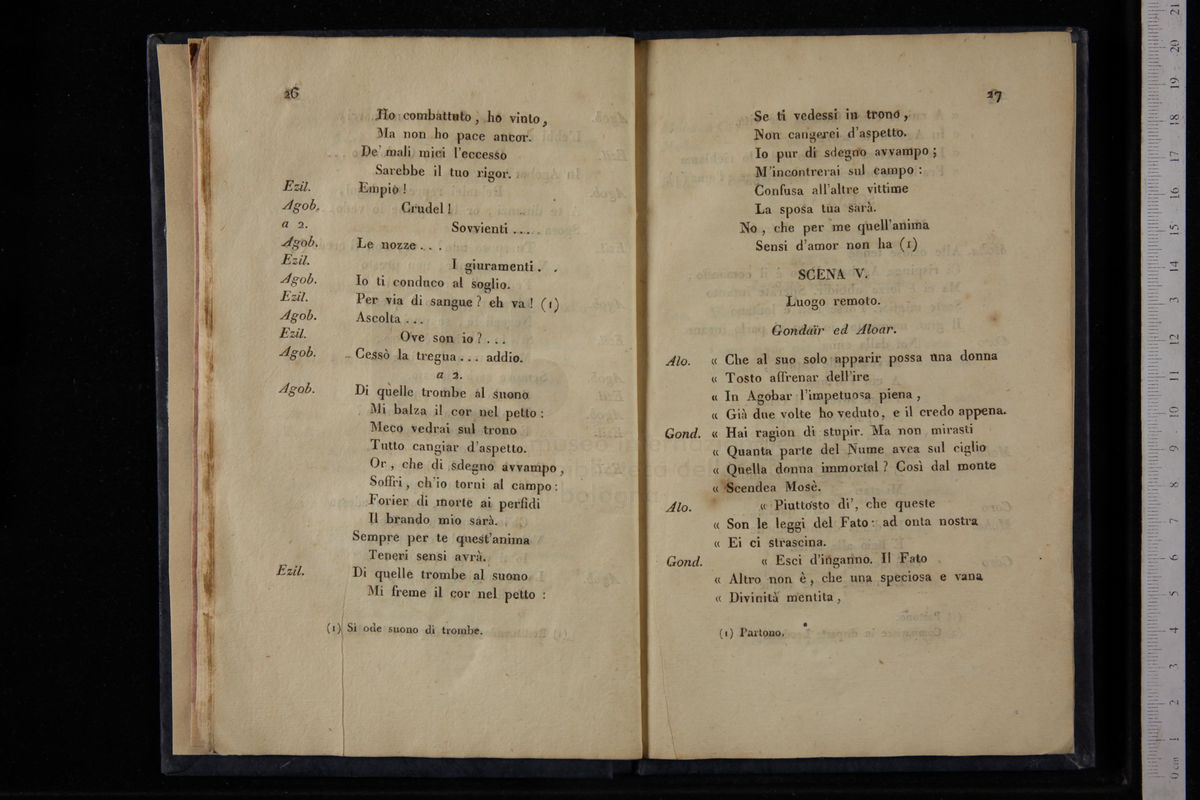 26
Ho combattuto, ho vinto,
Ma non ho pace ancor.
De' mali miei l'eccesso
Sarebbe il tuo rigor.
Ezil. Empio!
Agob. Crudel!
a 2. Sovvienti ....
Agob. Le nozze . . .
Ezil. I giuramenti. .
Agob. Io ti conduco al soglio.
Ezil. Per via di sangue? eh va! (1)
Agob. Ascolta ...
Ezil. Ove son io? ...
Agob. Cessò la tregua... addio.
a 2.
Agob. Di quelle trombe al suono
Mi balza il cor nel petto:
Meco vedrai sul trono
Tutto cangiar d'aspetto.
Or, che di sdegno avvampo,
Soffri, ch'io torni al campo:
Forier di morte ai perfidi
Il brando mio sarà.
Sempre per te quest'anima
Teneri sensi avrà.
Ezil. Di quelle trombe al suono
Mi freme il cor nel petto :
(1) Si ode suono di trombe.
27
Se ti vedessi in trono,
Non cangerei d'aspetto.
Io pur di sdegno avvampo;
M'incontrerai sul campo :
Confusa all'altre vittime
La sposa tua sarà.
No, che per me quell'anima
Sensi d'amor non ha (1)
SCENA V.
Luogo remoto.
Gondaïr ed Aloar.
Alo. « Che al suo solo apparir possa una donna
« Tosto affrenar dell'ire
« In Agobar l'impetuosa piena,
« Già due volte ho veduto, e il credo appena.
Gond. « Hai ragion di stupir. Ma non mirasti
« Quanta parte del Nume avea sul ciglio
« Quella donna immortal? Così dal monte
« Scendea Mosè.
Alo. « Piuttosto di', che queste
« Son le leggi del Fato: ad onta nostra
« Ei ci strascina.
Gond. « Esci d'inganno. Il Fato
« Altro non è, che una speciosa e vana
« Divinità mentita,
(1) Partono.
0 cm 1 2 3 4 5 6 7 8 9 10 11 12 13 14 15 16 17 18 19 20 21